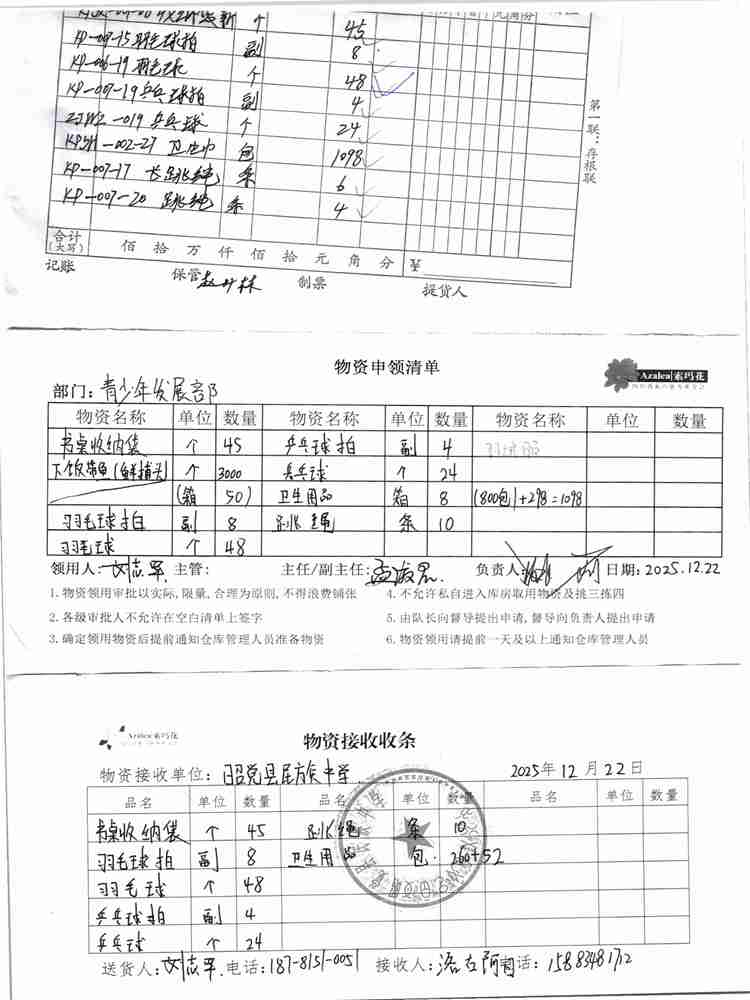 个 45
KP-007-15 羽毛球拍 副 8
KP-006-19 羽毛球 个 48
KP-007-19 乒乓球拍 副 4
ZJWZ-019 乒乓球 个 24
KPSH-002-27 卫生巾 包 1098
KP-007-17 长跳绳 条 6
KP-007-20 跳绳 条 4
第一联：存根联
合计(大写) 佰 拾 万 仟 佰 拾 元 角 分 ¥
记账 保管 制票 提货人
物资申领清单
Azalea|索玛花
部门：青少年发展部
物资名称 单位 数量 物资名称 单位 数量 物资名称 单位 数量
书桌收纳袋 个 45 乒乓球拍 副 4
个 3000 乒乓球 个 24
(箱 50) 卫生用品 箱 8 (800包)+298=1098
羽毛球拍 副 8 跳绳 条 10
羽毛球 个 48
领用人：刘志军 主管： 主任/副主任： 负责人： 日期：2025.12.22
1.物资领用审批以实际,限量,合理为原则,不得浪费铺张 4.不允许私自进入库房取用物资及挑三拣四
2.各级审批人不允许在空白清单上签字 5.由队长向督导提出申请,督导向负责人提出申请
3.确定领用物资后提前通知仓库管理人员准备物资 6.物资领用请提前一天及以上通知仓库管理人员
Azalea|索玛花
物资接收收条
物资接收单位：昭觉县民族中学 2025年12月22日
品名 单位 数量 品名 单位 数量 品名 单位 数量
书桌收纳袋 个 45 跳绳 条 10
羽毛球拍 副 8 卫生用品 包 260+52
羽毛球 个 48
乒乓球拍 副 4
乒乓球 个 24
送货人：刘志军 电话：187-8151-0051 接收人： 电话：15883481712